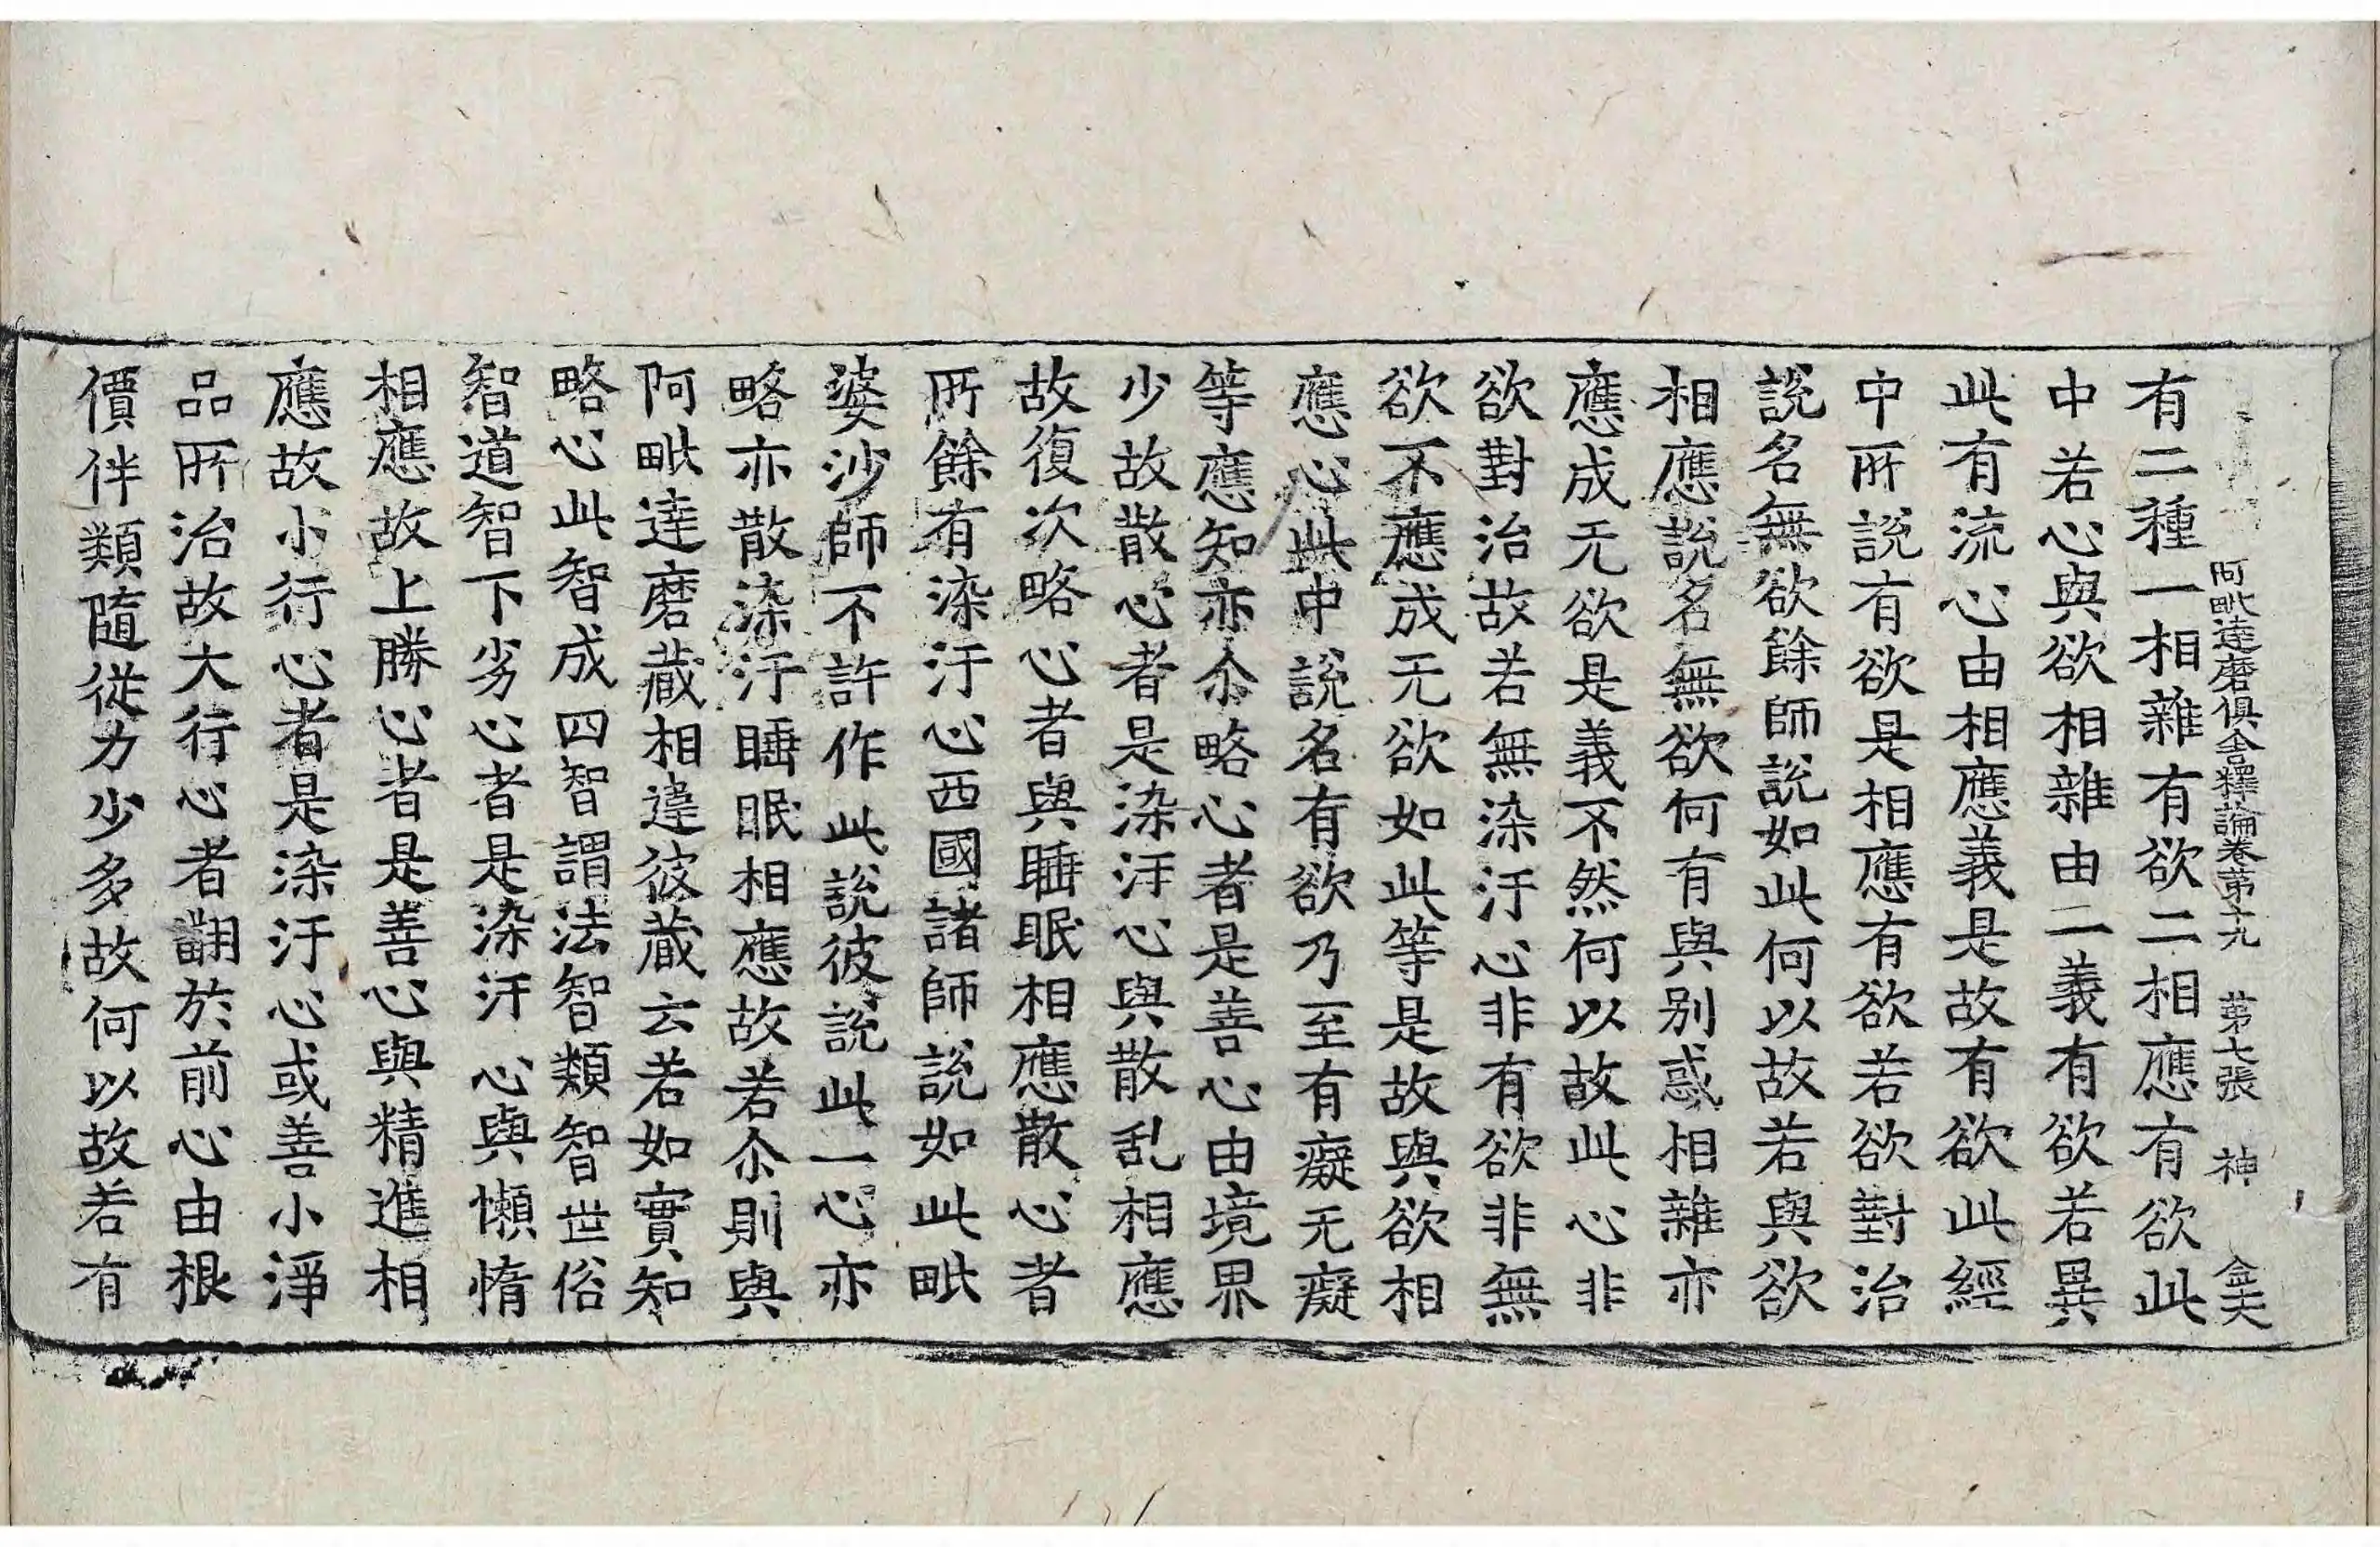 阿毗達磨俱舍釋論卷苐十九 苐七張 神 金夫
有二種一相雜有欲二相應有欲此
中若心與欲相雜由二義有欲若異
此有流心由相應義是故有欲此經
中所說有欲是相應有欲若欲對治
說名無欲餘師說如此何以故若與欲
相應說名無欲何有與别惑相雜亦
應成无欲是義不然何以故此心非
欲對治故若無染汙心非有欲非無
欲不應成无欲如此等是故與欲相
應心此中說名有欲乃至有癡无癡
等應知亦尒略心者是善心由境界
少故散心者是染汙心與散乱相應
故復次略心者與睡眠相應散心者
所餘有染汙心西國諸師說如此毗
婆沙師不許作此說彼說此一心亦
略亦散染汙睡眠相應故若尒則與
阿毗達磨藏相違彼藏云若如實知
略心此智成四智謂法智類智世俗
智道智下劣心者是染汙心與懶惰
相應故上勝心者是善心與精進相
應故小行心者是染汙心或善小淨
品所治故大行心者翻於前心由根
價伴類隨從力少多故何以故若有